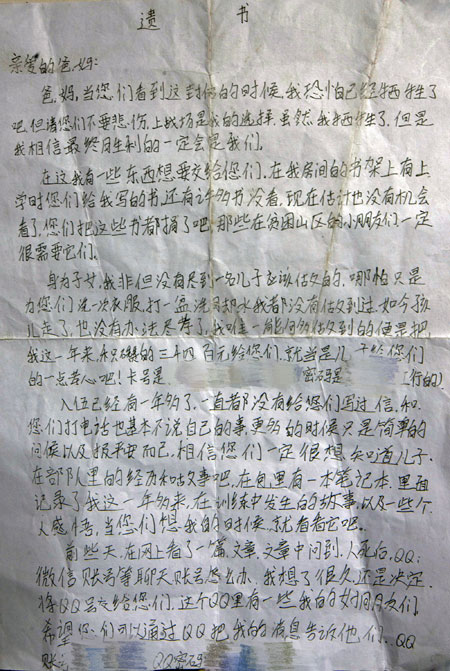 遗 书
亲爱的爸、妈:
爸、妈,当您们看到这封信的时候,我恐怕已经牺牲了
吧,但请您们不要悲伤,上战场是我的选择,虽然我牺牲了,但是
我相信最终胜利的一定会是我们。
在这我有一些东西想要交给您们,在我房间的书架上有上
学时您们给我写的书,还有许多书没看,现在估计也没有机会
看了,您们把这些书都捐了吧,那些在贫困山区的小朋友们一定
很需要它们。
身为子女,我非但没有尽到一名儿子应该做的,哪怕只是
为您们洗一次衣服,打一盆洗脚水我都没有做到过,如今孩
儿走了,也没有办法尽孝了,我唯一能够做到的便是把
我这一年来积攒的三千四百元给您们,就当是儿子给您们
的一点苦心吧!卡号是 密码是 (行的)
入伍已经有一年多了,一直都没有给您们写过信,和
您们打电话也基本不说自己的事,更多的时候只是简单的
问候以及报平安而已,相信您们一定很想知道儿子
在部队里的经历和故事吧,在包里有一本笔记本,里面
记录了我这一年多来,在训练中发生的故事,以及一些个
人感悟,当您们想我的时候,就看看它吧。
前些天,在网上看了一篇文章,文章中问到,人死后,QQ、
微信账号等聊天账号怎么办,我想了很久,还是决定
将QQ号交给您们,这个QQ里有一些我的好朋友们
希望您们可以通过QQ把我的消息告诉他们。QQ
账号 QQ密码